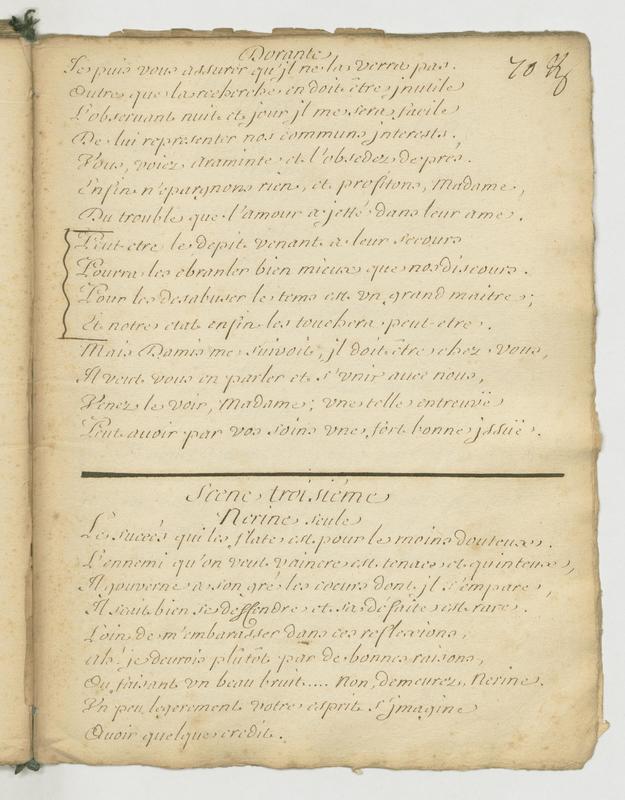 Dorante
Je puis vous assurer qu'jl ne la verra pas.
70
Outre que la recherche en doit être jnutile
L'observant nuit et jour jl me sera facile
De lui representer nos communs jnterests.
Vous, voiez Araminte et l'obsedez de près.
Enfin n'epargnons rien, et profitons, Madame,
Du trouble que l'amour a jetté dans leur ame.
Peut etre le depit venant a leur secours
Pourra les ebranler bien mieux que nos discours.
Pour les desabuser le tems est vn grand maitre;
Et notre etat enfin les touchera peut-etre.
Mais Damis me suivoit, jl doit être chez vous,
Il veut vous en parler et s'vnir avec nous,
Venez le voir, Madame; vne telle entreuvë
Peut avoir par vos soins vne fort bonne jssüe.
Scene troisiéme
Nerine seule
Le succés qui les flate est pour le moins douteux.
L'ennemi qu'on veut vaincre est tenace et quinteux,
Il gouverne a son gré les coeurs dont jl s'empare,
Il scait bien se deffendre et sa défaite est rare.
Loin de m'embarasser dans ces reflexions,
Ah! je devrois plûtôt par de bonnes raisons,
Ou faisant vn beau bruit.... Non, demeurez, Nerine.
Vn peu legerement votre esprit s'jmagine
Avoir quelque credit.